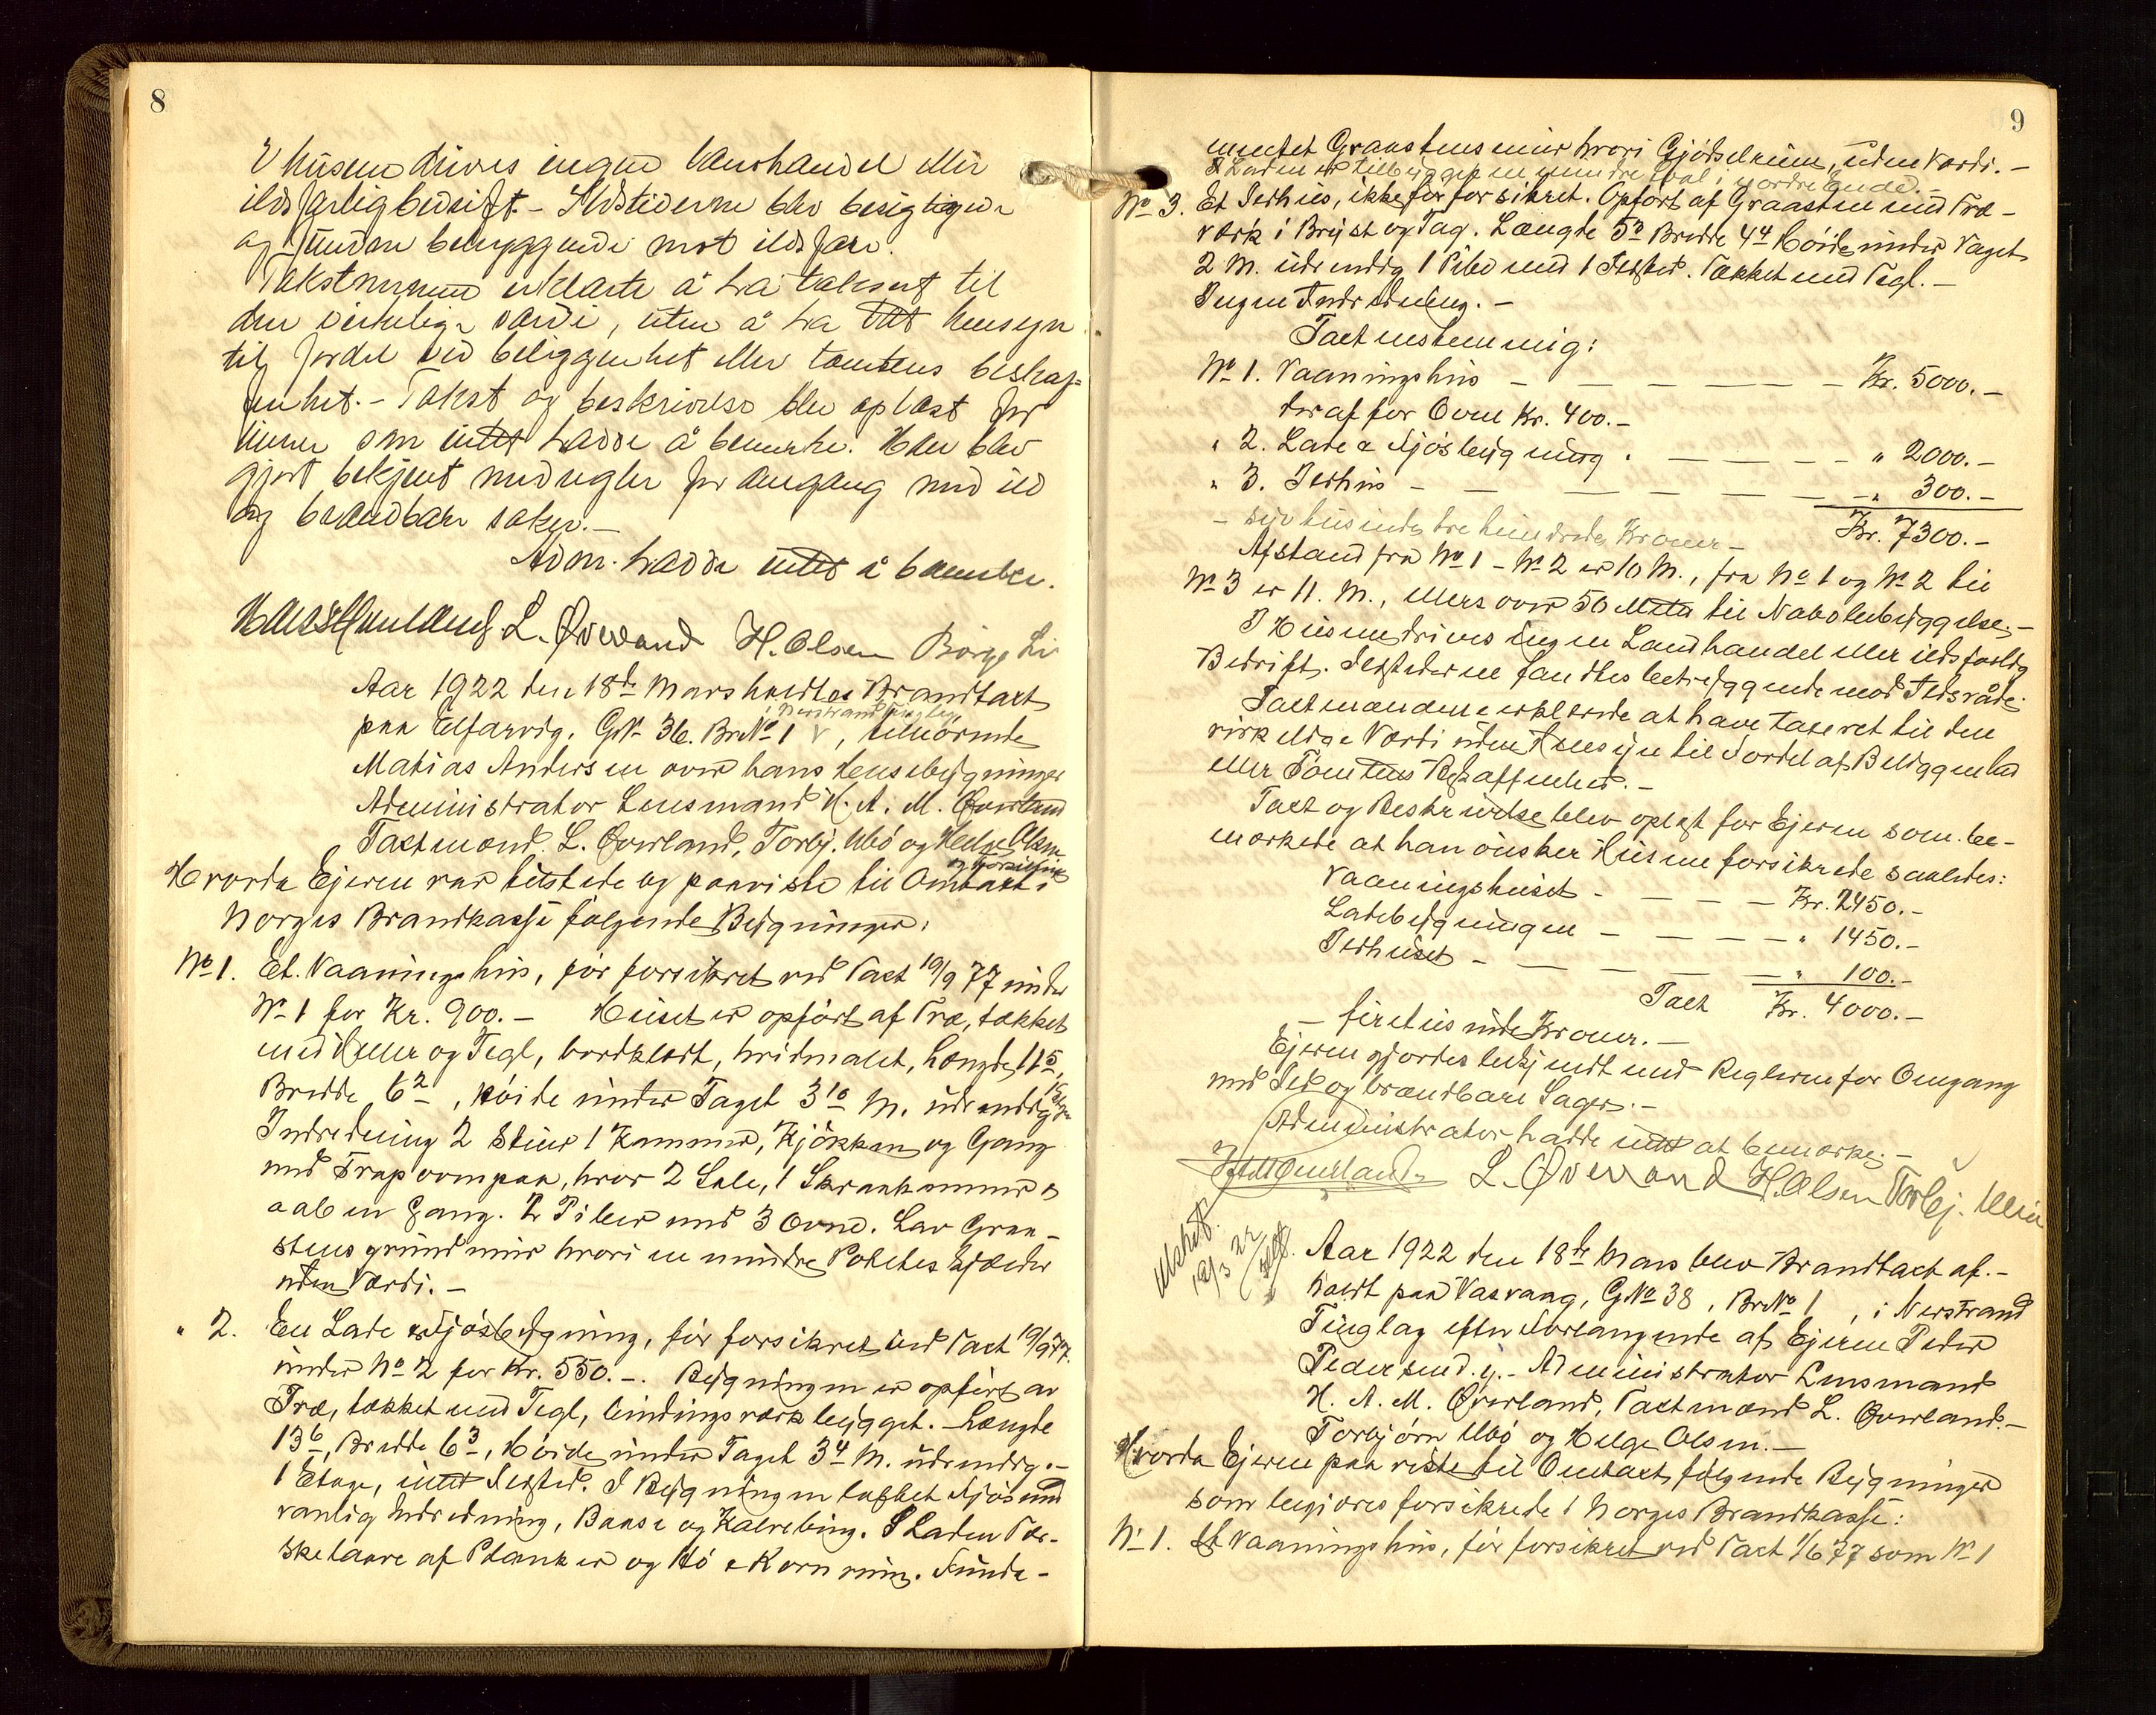 8
I husene drives ingen landhandel eller
ildsfarlig bedrift. - Ildstederne blev besigtiget
og funden betryggende mot ildsfare.
Takstmennene erklærte å ha taksert til
den virkelige værdi, uten å ha tat hensyn
til fordel ved beliggenhet eller tomtens beskaf-
fenhet. - Takst og beskrivelse blev oplæst for
eieren som intet hadde å bemerke. Han blev
gjort bekjent med regler for omgang med ild
og brændbare saker. -
Adm. hadde intet å bemerke.
L. Øverland H. Olsen Børge Li
Aar 1922 den 18de Mars holdtes Brandtaxt
i Nerstrand Tinglag
paa Ulfarvig, GNo 36. BrNo 1 v, tilhørende
Matias Andersen over hans Husebygninger
Administrator Lensmand H. A. M. Øverland
Taxtmænd. L. Øverland, Torbj. Ubø og Helge Olsen
Hvorda Ejeren var tilstede og paaviste til Omtaxt i
og Forsikring
Norges Brandkasse følgende Bygninger:
No 1. Et Vaaningshus, før forsikret ved Taxt 19/9 77 under
No 1 for Kr. 900. - Huset er opført af Træ, tækket
med Heller og Tegl, bordklædt, hvidmalet, Længde 11 5,
Bredde 6 2, Høide under Taget 3 10 M. udvendig 1 Etage
Indredning 2 Stuer 1 Kammer, Kjøkken og Gang
med Trap ovenpaa, hvor 2 Sale, 1 Skraakammer &
aaben Gang. 2 Piber med 3 Ovne. Lav Graa-
stens grundmur hvori en mindre Potetes Kjælder
uden Værdi. -
" 2. En Lade & Fjøsbygning, før forsikret ved Taxt 19/9 77.
under No 2 for Kr. 550. -. Bygningen er opført av
Træ, tækket med Tegl, bindingsværk bygget. - Længde
13 6, Bredde 6 3, Høide under Taget 3 4 M. udvendig. -
1 Etage, intet Ildsted. I Bygningen lafket Fjøs med
vanlig Indredning, Baase og Kalvebing. I Laden Tær-
skelaave af Planker og Hø & Korn rum. Funda-
9
mentet Graastensmur hvori Gjødselrum, uden Værdi. -
I Laden er tilbygget en mindre Sval i nordre Ende. -
No 3. Et Ildhus, ikke før forsikret. Opført af Graasten med Træ-
værk i Bryst og Tag. Længde 5 0 Bredde 4 4 Høide under Taget
2 M. udvendig 1 Pibe med 1 Ildsted. Tækket med Tegl. -
Ingen Indredning. -
Taxt enstemmig:
No 1. Vaaningshus - - - - - - Kr. 5000. -
deraf for Ovne Kr. 400. -
" 2. Lade & Fjøsbygning. - - - - " 2000. -
" 3. Ildhus - - - - - - " 300. -
- syv tusinde tre hundrede Kroner - Kr. 7300. -
Afstand fra No 1 - No 2 er 10 M., fra No 1 og No 2 til
No 3 er 11. M., ellers over 50 Meter til Nabobebyggelse. -
I Husene drives ingen Landhandel eller ildsfarlig
Bedrift. Ildstederne fandtes betryggende mod Ildsvåde.
Taxtmændene erklærede at have taxeret til den
virkelige Værdi uden Hensyn til Fordel af Beliggenhed
eller Tomtens Beskaffenhed. -
Taxt og Beskrivelse blev oplæst for Ejeren som be-
mærkede at han ønsker Husene forsikrede saaledes:
Vaaningshuset - - - - Kr. 2450. -
Ladebygningen - - - - " 1450. -
Ildhuset - - - - - " 100. -
Taxt Kr. 4000. -
- firetusinde Kroner. -
Ejeren gjordes bekjendt med Reglerne for Omgang
med Ild og brændbare Sager. -
Administrator hadde intet at bemærke. -
HAMØverland. L. Øverland H. Olsen Torbj. Ubø
Utskrift.
18/3 22
Aar 1922 den 18de Mars blev Brandtaxt af-
holdt paa Vasvaag, GNo 38, BrNo 1, i Nerstrand
Tinglag efter Forlangende af Ejeren Peder
Pedersen d. y. - Administrator Lensmand
H. A. M. Øverland, Taxtmænd L. Øverland -
Torbjørn Ubø og Helge Olsen. -
Hvorda Ejeren paa viste til Omtaxt følgende Bygninger
som begjæres forsikrede i Norges Brandkasse:
No 1. Et Vaaningshus, før forsikret ved Taxt 1/6 77 som No 1